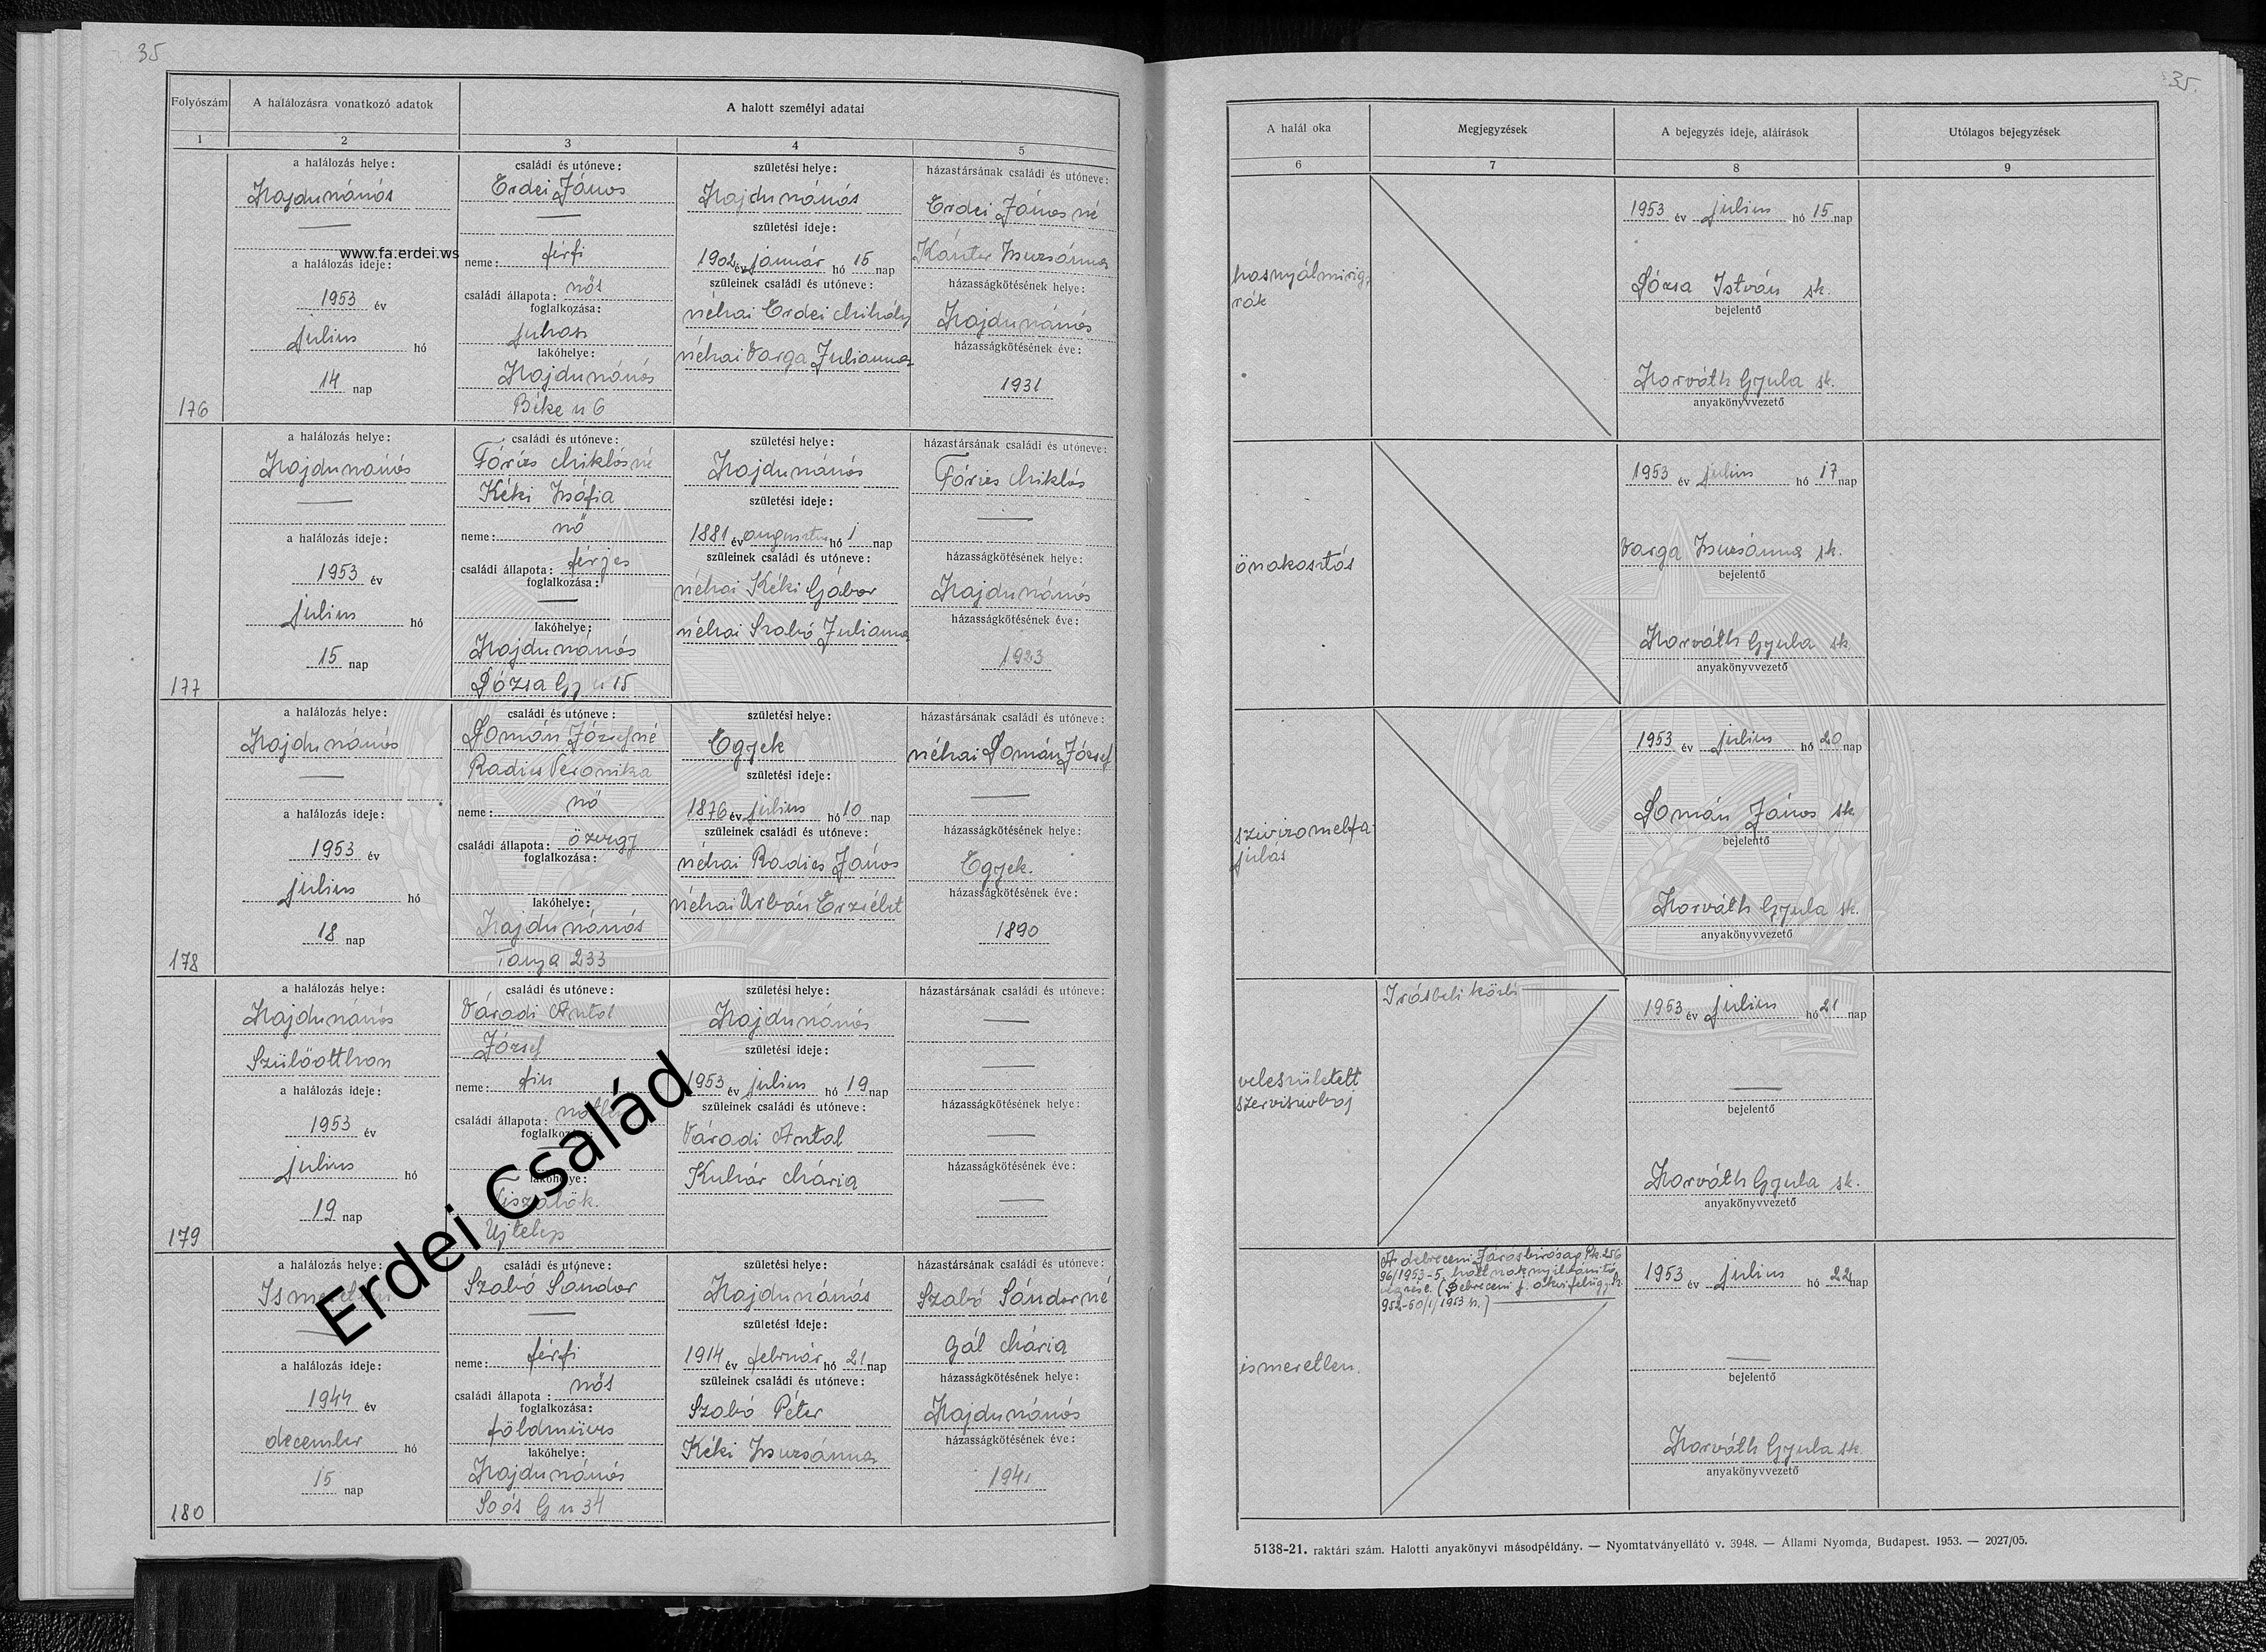 35
35.
Folyószám
A halálozásra vonatkozó adatok
A halott személyi adatai
1
2
3
4
5
a halálozás helye:
Hajdunánás
www.fa.erdei.ws
a halálozás ideje:
1953 év
julius hó
14 nap
176
családi és utóneve:
Erdei János
neme: férfi
családi állapota: nős
foglalkozása:
juhász
lakóhelye:
Hajdunánás
Béke u 6
születési helye:
Hajdunánás
születési ideje:
1902 év január hó 15 nap
szüleinek családi és utóneve:
néhai Erdei Mihály
néhai Varga Julianna
házastársának családi és utóneve:
Erdei Jánosné
Kántor Zsuzsánna
házasságkötésének helye:
Hajdunánás
házasságkötésének éve:
1931
a halálozás helye:
Hajdunánás
a halálozás ideje:
1953 év
julius hó
15 nap
177
családi és utóneve:
Fóris Miklósné
Kéki Zsófia
neme: nő
családi állapota: férjes
foglalkozása:
lakóhelye:
Hajdunánás
Dózsa Gy u 15
születési helye:
Hajdunánás
születési ideje:
1881 év augusztus hó 1 nap
szüleinek családi és utóneve:
néhai Kéki Gábor
néhai Szabó Julianna
házastársának családi és utóneve:
Fóris Miklós
házasságkötésének helye:
Hajdunánás
házasságkötésének éve:
1923
a halálozás helye:
Hajdunánás
a halálozás ideje:
1953 év
julius hó
18 nap
178
családi és utóneve:
Domán Józsefné
Radics Veronika
neme: nő
családi állapota: özvegy
foglalkozása:
lakóhelye:
Hajdunánás
Tanya 233
születési helye:
Egyek
születési ideje:
1876 év julius hó 10 nap
szüleinek családi és utóneve:
néhai Radics János
néhai Urbán Erzsébt
házastársának családi és utóneve:
néhai Domán József
házasságkötésének helye:
Egyek.
házasságkötésének éve:
1890
a halálozás helye:
Hajdunánás
Szülőotthon
a halálozás ideje:
1953 év
julius hó
19 nap
179
családi és utóneve:
Váradi Antal
József
neme: fiu
családi állapota:
foglalkozása:
lakóhelye:
Tiszalök.
Ujtelep
születési helye:
Hajdunánás
születési ideje:
1953 év julius hó 19 nap
szüleinek családi és utóneve:
Váradi Antal
Kuhár Mária
házastársának családi és utóneve:
házasságkötésének helye:
házasságkötésének éve:
Erdei Család
a halálozás helye:
Ismeretlen
a halálozás ideje:
1944 év
december hó
15 nap
180
családi és utóneve:
Szabó Sándor
neme: férfi
családi állapota: nős
foglalkozása:
földmüves
lakóhelye:
Hajdunánás
Soós G u 34
születési helye:
Hajdunánás
születési ideje:
1914 év február hó 21 nap
szüleinek családi és utóneve:
Szabó Péter
Kéki Zsuzsánna
házastársának családi és utóneve:
Szabó Sándorné
Gál Mária
házasságkötésének helye:
Hajdunánás
házasságkötésének éve:
1941
A halál oka
Megjegyzések
A bejegyzés ideje, aláírások
Utólagos bejegyzések
6
7
8
9
hasnyálmirigy
rák
1953 év julius hó 15 nap
Dózsa István sk.
bejelentő
Horváth Gyula sk.
anyakönyvvezető
önakasztás
1953 év julius hó 17 nap
Varga Zsuzsánna sk.
bejelentő
Horváth Gyula sk.
anyakönyvvezető
szivizomelfa
julás
1953 év julius hó 20 nap
Domán János sk.
bejelentő
Horváth Gyula sk.
anyakönyvvezető
veleszületett
szervi
Irásbeli közlés
1953 év julius hó 21 nap
bejelentő
Horváth Gyula sk.
anyakönyvvezető
ismeretlen.
A debreceni Járásbiróság Pk. 256
96/1953-5. holtnak nyilvánitó
végzése. (Debreceni j.
952-50/1/1953 sz.)
1953 év julius hó 22 nap
bejelentő
Horváth Gyula sk.
anyakönyvvezető
5138-21. raktári szám. Halotti anyakönyvi másodpéldány. — Nyomtatványellátó v. 3948. — Állami Nyomda, Budapest. 1953. — 2027/05.